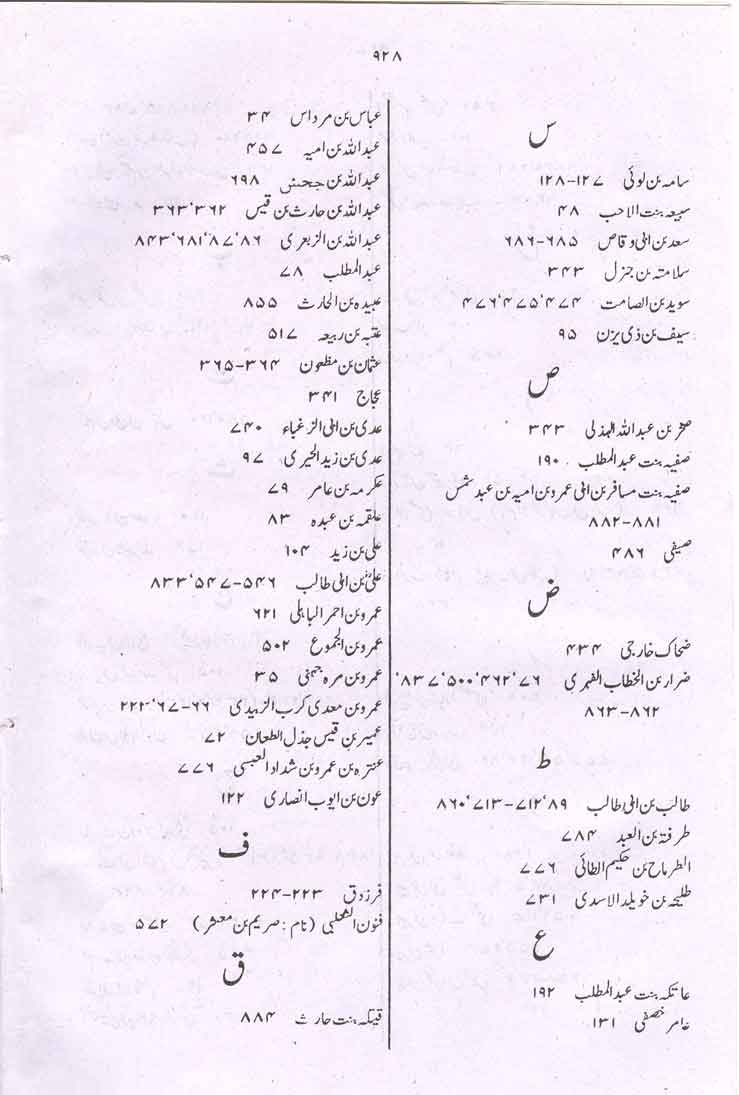 ۹۲۸
س
سامہ بن لوئی ۱۲۷-۱۲۸
سبیعہ بنت الاحب ۴۸
سعد بن ابی وقاص ۶۸۵-۶۸۶
سلامتہ بن جنزل ۳۴۳
سوید بن الصامت ۴۷۴، ۴۷۵، ۴۷۶
سیف بن ذی یزن ۹۵
ص
صخر بن عبداللہ الہذلی ۳۴۳
صفیہ بنت عبدالمطلب ۱۹۰
صفیہ بنت مسافر بن ابی عمرو بن امیہ بن عبد شمس
۸۸۱-۸۸۲
صیفی ۴۸۶
ض
ضحاک خارجی ۴۳۴
ضرار بن الخطاب الفہری ۷۶، ۴۶۲، ۵۰۰، ۸۳۷،
۸۶۲-۸۶۳
ط
طالب بن ابی طالب ۸۹، ۷۱۲-۷۱۳، ۸۶۰
طرفتہ بن العبد ۷۸۴
الطرماح بن حکیم الطائی ۷۷۶
طلیحہ بن خویلد الاسدی ۷۳۱
ع
عاتکہ بنت عبدالمطلب ۱۹۲
عامر خصفی ۱۳۱
عباس بن مرداس ۳۴
عبداللہ بن امیہ ۴۵۷
عبداللہ بن جحش ۶۹۸
عبداللہ بن حارث بن قیس ۳۶۲، ۳۶۳
عبداللہ بن الزبعری ۸۶، ۸۷، ۶۸۱، ۸۴۳
عبدالمطلب ۷۸
عبیدہ بن الحارث ۸۵۵
عتبہ بن ربیعہ ۵۱۷
عثمان بن مظعون ۳۶۴-۳۶۵
عجاج ۳۴۱
عدی بن ابی الزغباء ۷۴۰
عدی بن زید الحیری ۹۷
عکرمہ بن عامر ۷۹
علقمہ بن عبدہ ۸۳
علی بن زید ۱۰۴
علیؓ بن ابی طالب ۵۴۶-۵۴۷، ۸۳۳
عمرو بن احمر الباہلی ۶۲۱
عمرو بن الجموع ۵۰۲
عمرو بن مرہ جہنی ۳۵
عمرو بن معدی کرب الزبیدی ۶۶-۶۷، ۲۲۳
عمیر بن قیس جذل الطعان ۷۲
عنترہ بن عمرو بن شداد العبسی ۷۷۶
عون بن ایوب انصاری ۱۲۲
ف
فرزدق ۲۲۳-۲۲۴
فنون التغلبی (نام: صریم بن معشر) ۵۷۲
ق
قتیلہ بنت حارث ۸۸۴